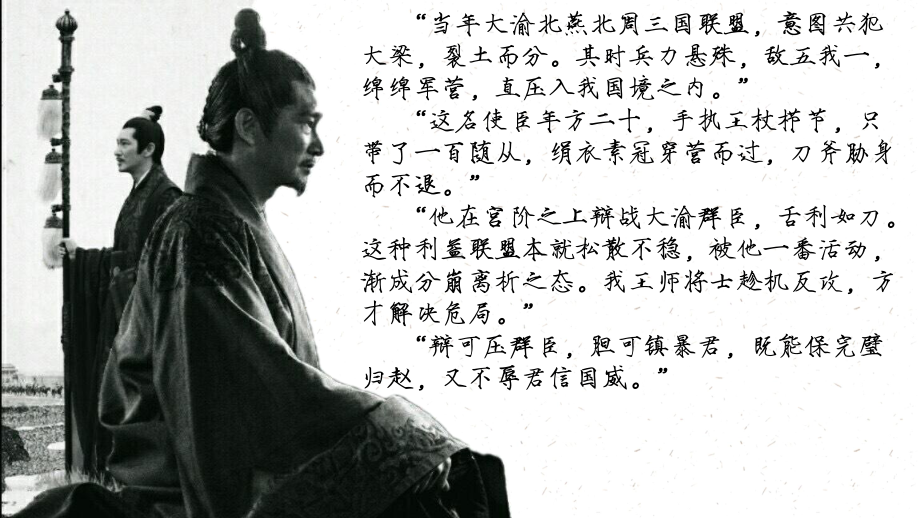 “当年大渝北燕北周三国联盟，意图共犯
大梁，裂土而分。其时兵力悬殊，敌五我一，
绵绵军营，直压入我国境之内。”
“这名使臣年方二十，手执王杖栉节，只
带了一百随从，绢衣素冠穿营而过，刀斧胁身
而不退。”
“他在宫阶之上辩战大渝群臣，舌利如刀。
这种利益联盟本就松散不稳，被他一番活动，
渐成分崩离析之态。我王师将士趁机反攻，方
才解决危局。”
“辩可压群臣，胆可镇暴君，既能保完璧
归赵，又不辱君信国威。”